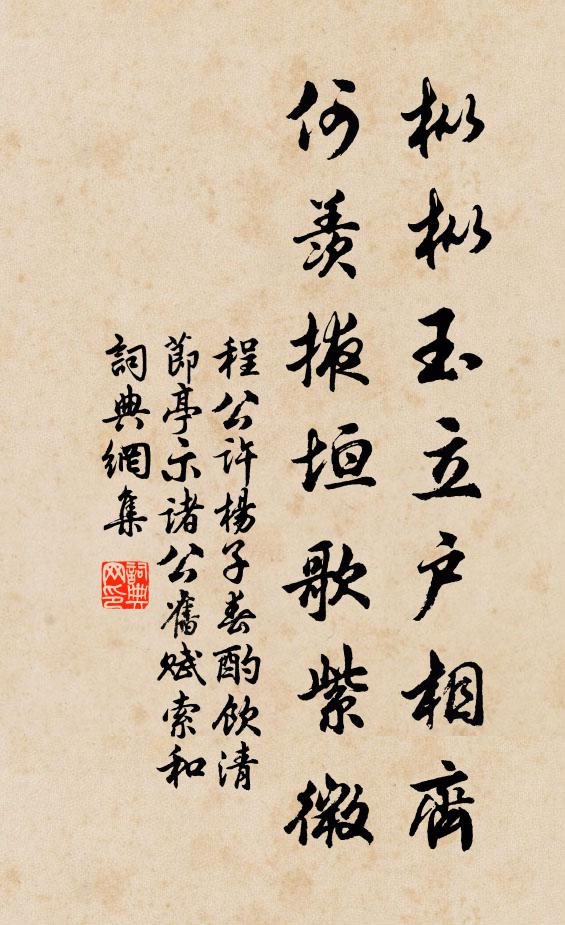 枞枞玉立户相齊
何羨掖垣歌紫微
程公許楊子春酌飲清
節亭示諸公舊賦索和
詞典網集
詞典
网印